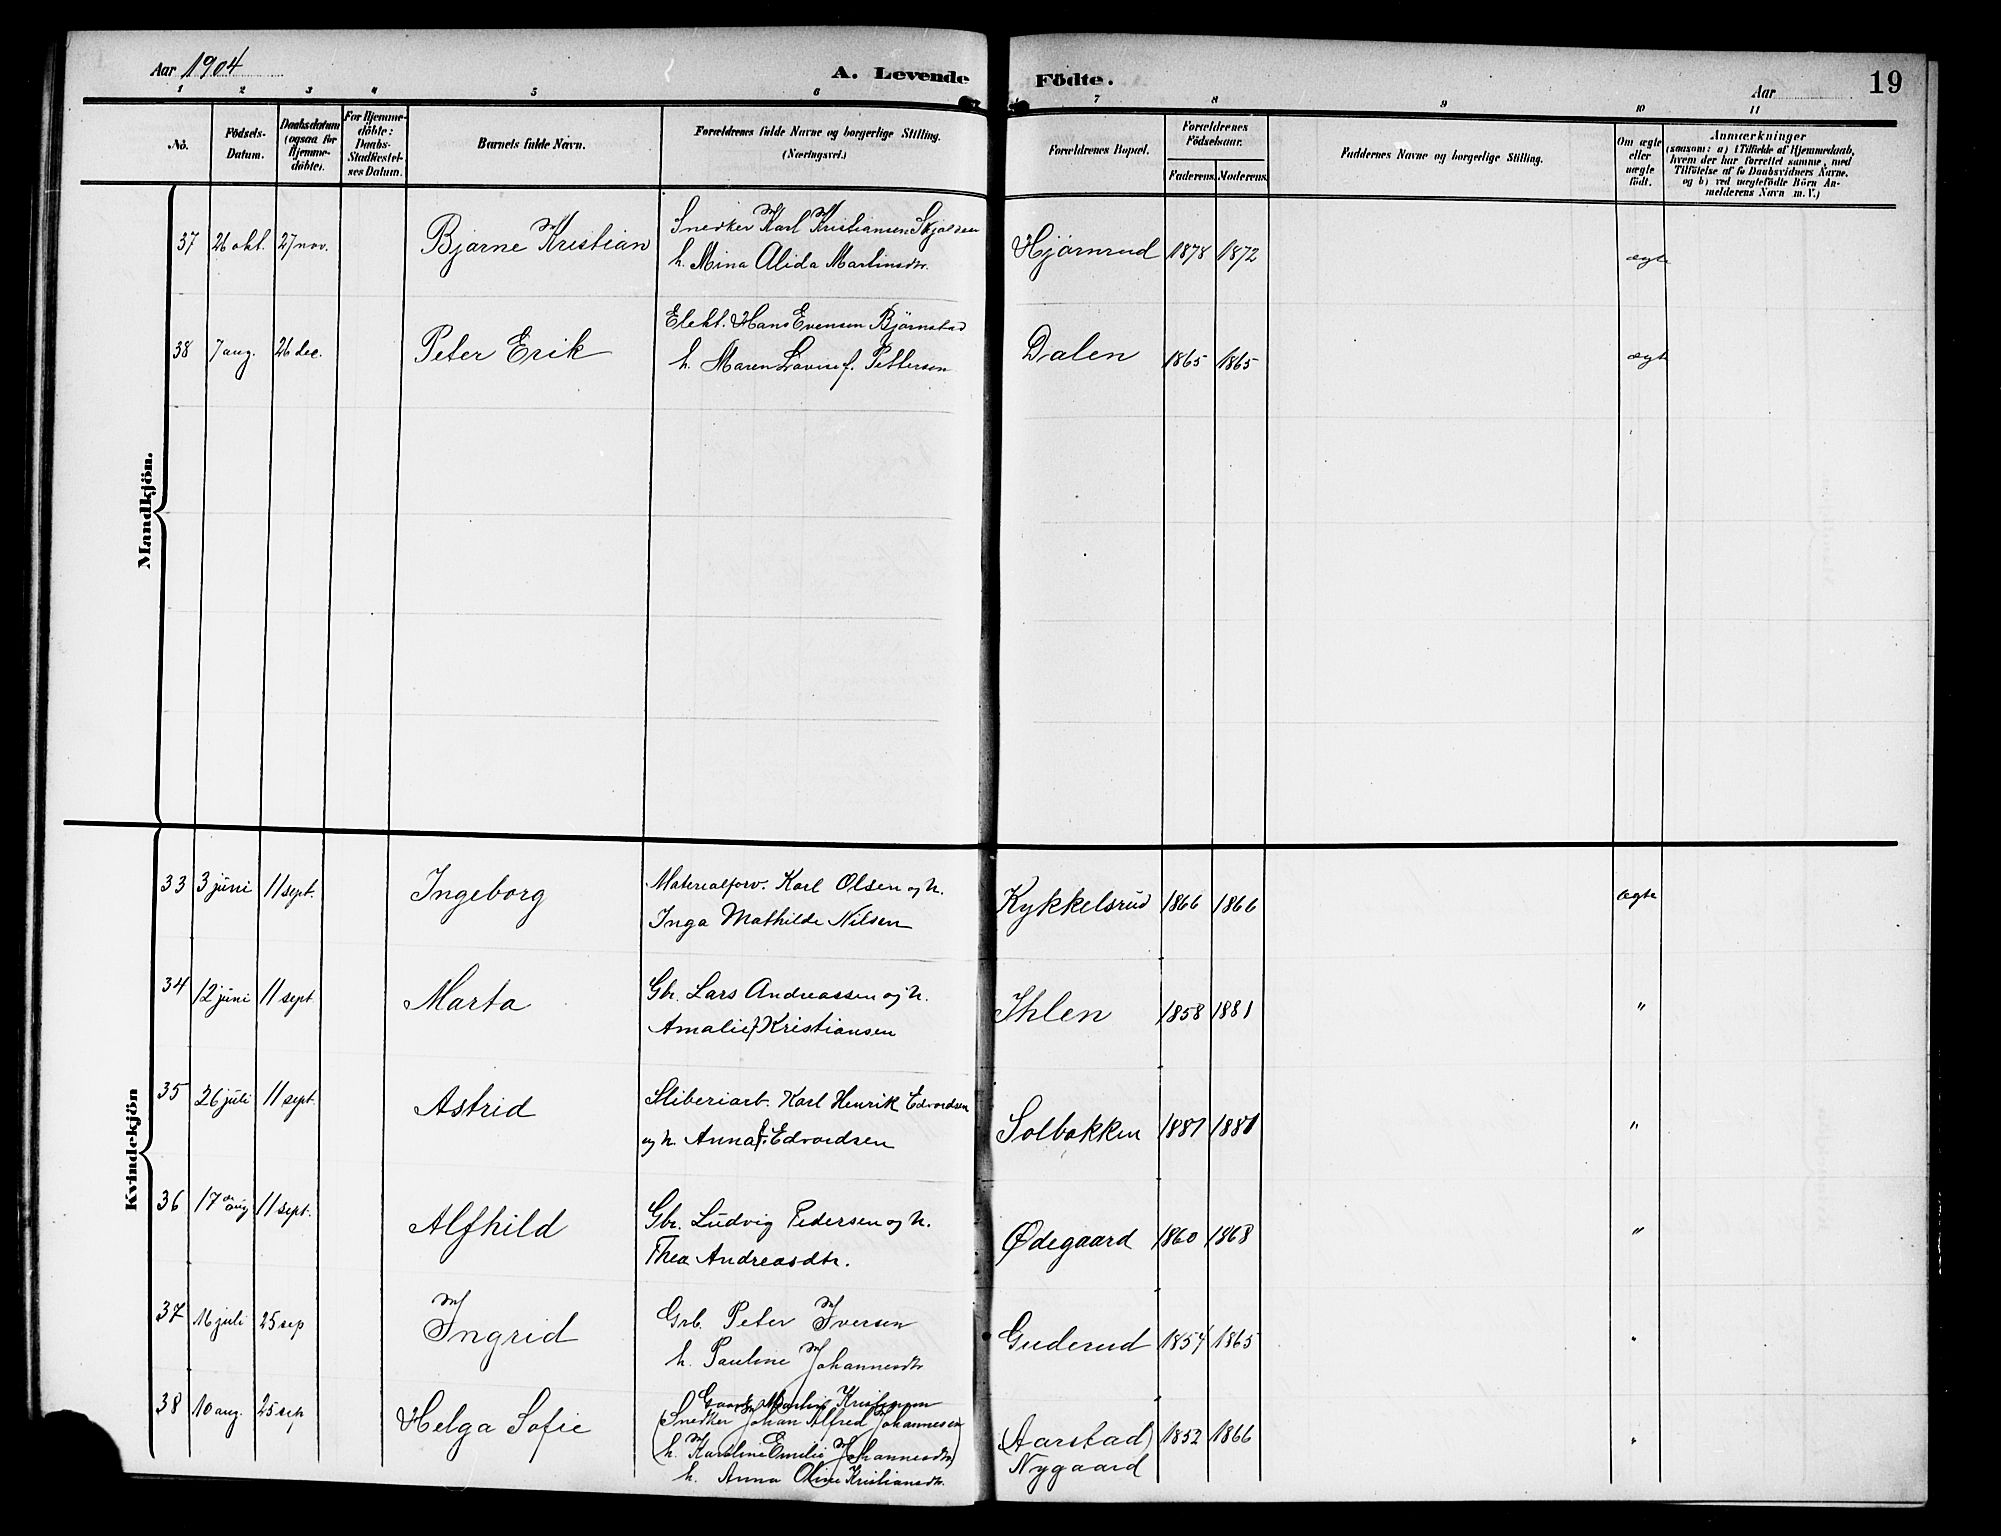 Aar 1904
A. Levende Födte.
Aar
19
1 2 3 4 5 6 7 8 9 10 11
No.
Födsels-
Datum.
Daabsdatum
(ogsaa for
Hjemme-
döbte).
For Hjemme-
döbte:
Daabs-
Stadfæstel-
ses Datum.
Barnets fulde Navn.
Forældrenes fulde Navne og borgerlige Stilling.
(Næringsvei.)
Forældrenes Bopæl.
Forældrenes
Födselsaar.
Faderens. Moderens.
Faddernes Navne og borgerlige Stilling.
Om ægte
eller
uægte
födt.
Anmærkninger
(saasom: a) i Tilfælde af Hjemmedaab,
hvem der har forrettet samme, med
Tilföielse af to Daabsvidners Navne.
og b) ved uægtefödte Börn An-
melderens Navn m. V.)
Mandkjön.
37 26 okt. 27 nov. Bjarne Kristian Snedker Karl Kristiansen
h. Mina Alida Martinsdtr. Hjørnrud 1878 1872 ægte
38 7 aug. 26 dec. Peter Erik Elekt. Hans Evensen Bjørnstad
h. Maren Lovise f. Pettersen Dalen 1865 1865 ægt
Kvindekjön
33 3 juni 11 sept. Ingeborg Materialforv. Karl Olsen og h.
Inga Mathilde Nilsen Kykkelsrud 1866 1866 ægte
34 12 juni 11 sept Marta Gbr. Lars Andreassen og h.
Amalie f Kristiansen Ihlen 1858 1881 "
35 26 juli 11 sept. Astrid Sliberiarb. Karl Henrik Edvardsen
og h. Anna f. Edvardsen Solbakken 1881 1881 "
36 17 aug 11 sept. Alfhild Gbr. Ludvig Pedersen og h.
Thea Andreasdtr. Ødegaard 1860 1868 "
37 16 juli 25 sep Ingrid Grb. Peter Iversen
h. Pauline Johannesdtr Guderud 1854 1865 "
38 10 aug. 25 sep Helga Sofie Gaardb. Martin Kristiansen
(Snedker Johan Alfred Johannesen
h. Karoline Emilie Johannesdtr)
h. Anna Oline Kristiansdtr. (Aarstad) 1852 1866 "
Nygaard